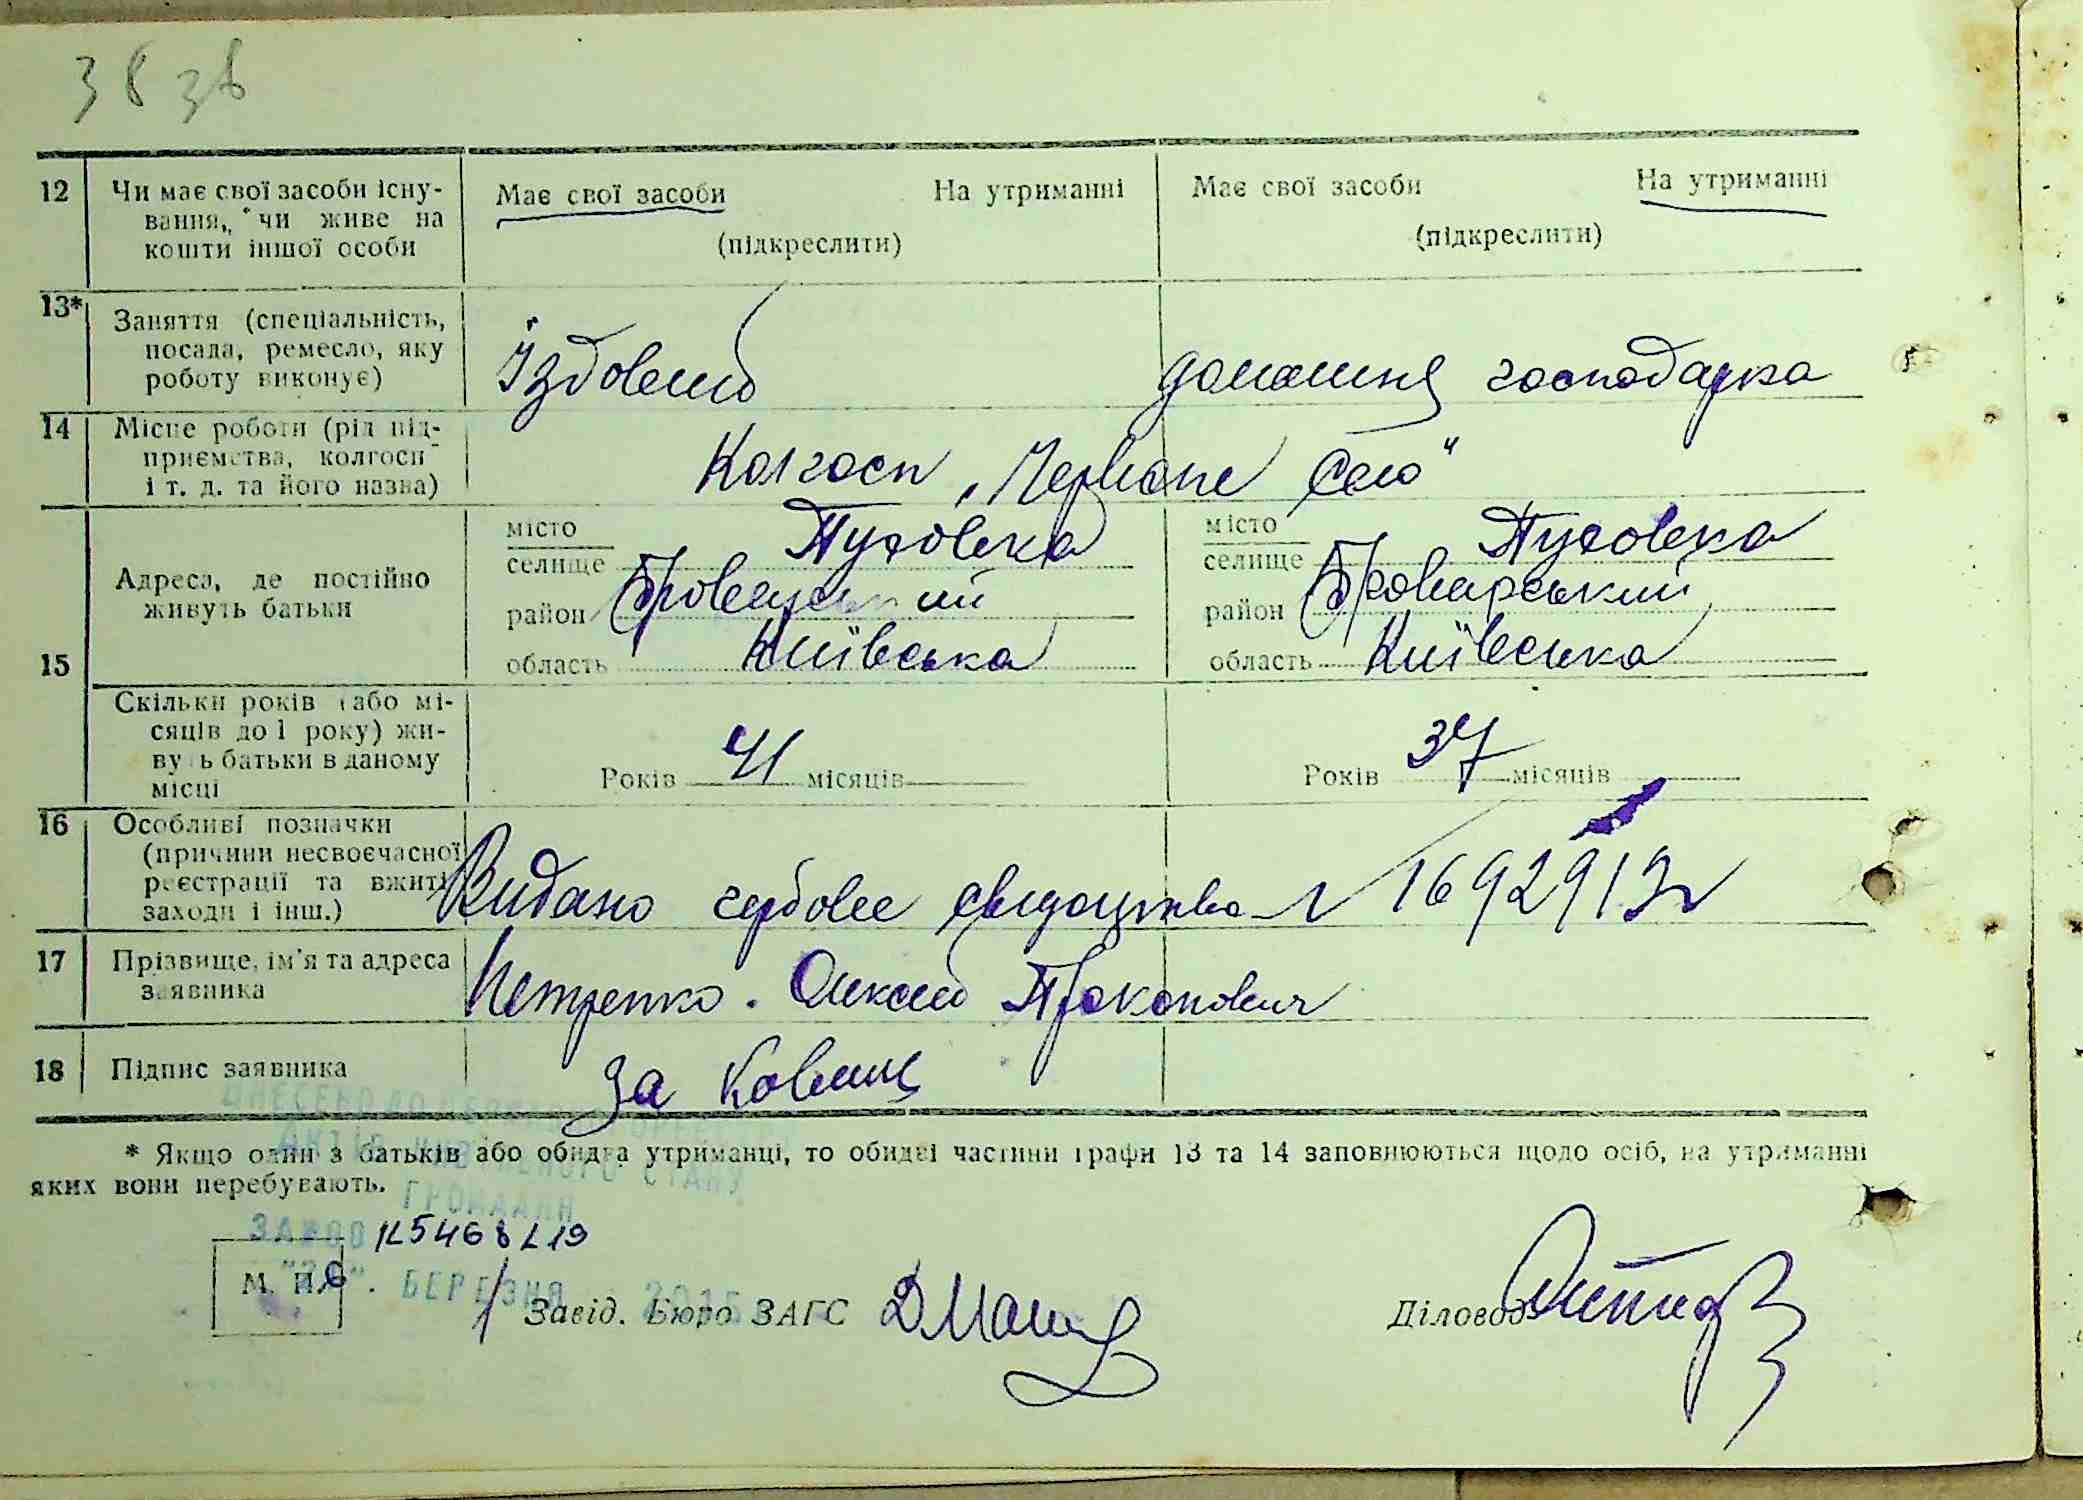 38 зв
12 Чи має свої засоби існу-
вання, чи живе на
кошти іншої особи
Має свої засоби На утриманні
(підкреслити)
Має свої засоби На утриманні
(підкреслити)
13* Заняття (спеціальність,
посада, ремесло, яку
роботу виконує)
Їздовий
домашня господарка
14 Місце роботи (рід під-
приємства, колгосп
і т. д. та його назва)
Колгосп „Червоне Село"
15 Адреса, де постійно
живуть батьки
місто
селище Пуховка
район
область Київська
місто
селище Пуховка
район Броварський
область Київська
Скільки років (або мі-
сяців до 1 року) жи-
вуть батьки в даному
місці
Років 41 місяців
Років 37 місяців
16 Особливі позначки
(причини несвоєчасної
реєстрації та вжиті
заходи і інш.)
Видано гербове свидоцтво
17 Прізвище, ім'я та адреса
заявника
Петренко Олексій Прокопович
18 Підпис заявника
за
* Якщо один з батьків або обидва утриманці, то обидві частини графи 13 та 14 заповнюються щодо осіб, на утриманні
яких вони перебувають.
АКТІВ СТАНУ
ГРОМАДЯН
БЕРЕЗНЯ
М. П.
Завід. Бюро ЗАГС
Діловод